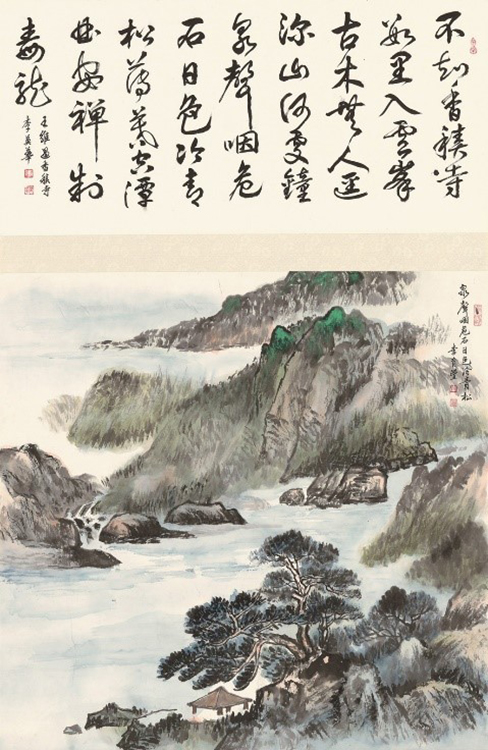 不知香積寺
數里入雲峯
古木無人逕
深山何處鐘
泉聲咽危
石日色冷青
松薄暮空潭
曲安禪制
毒龍
王維過香積寺
泉聲咽危石日色冷青松